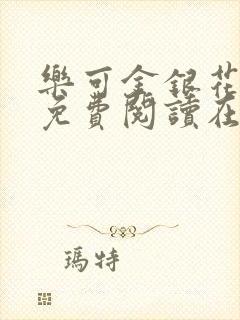 樂可金銀花
免費閱讀在
瑪特